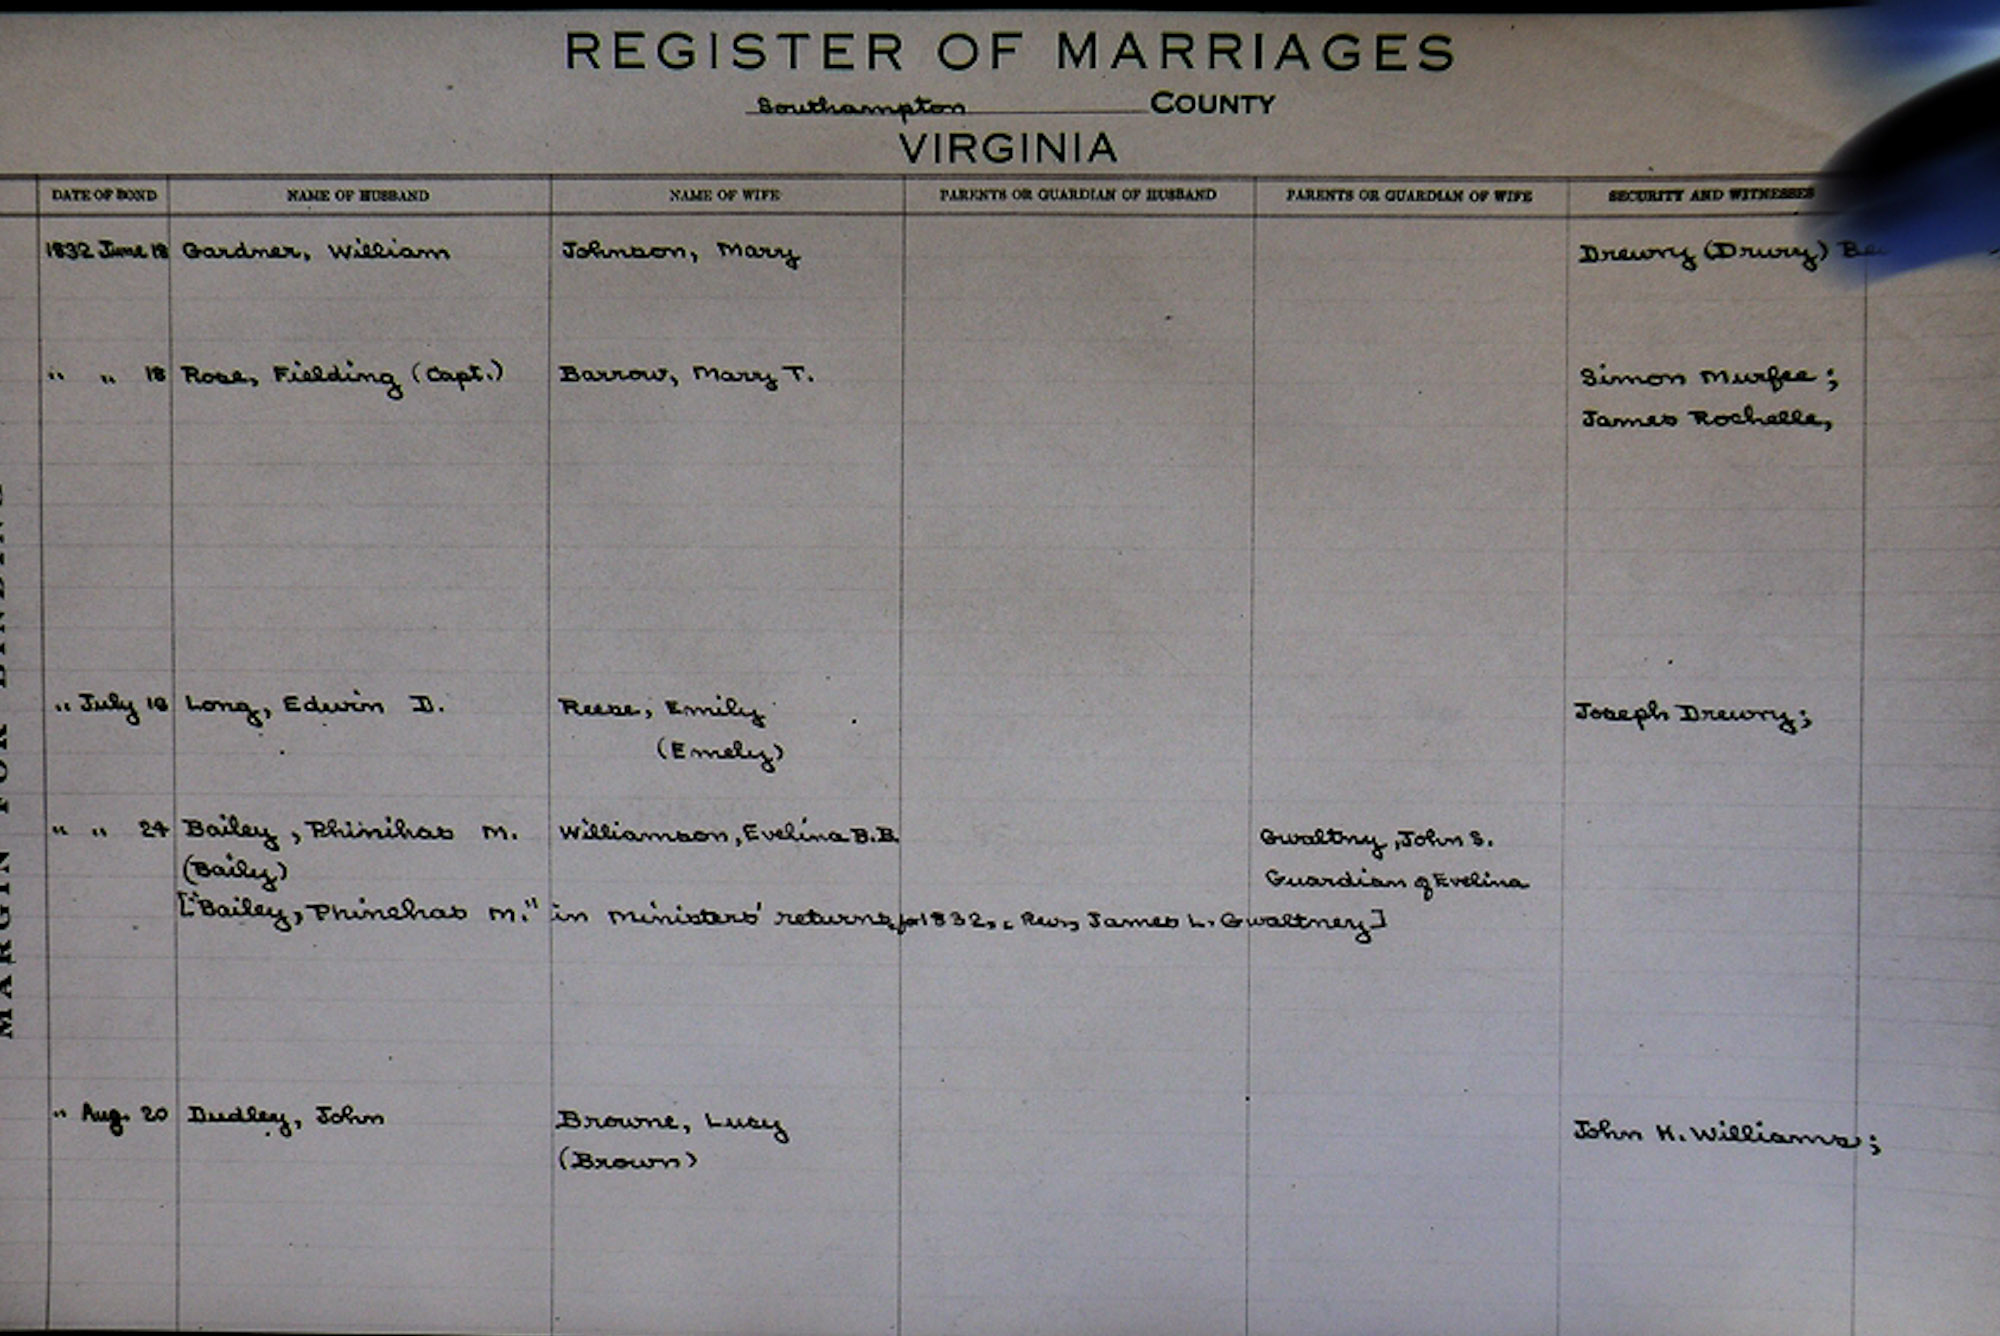 REGISTER OF MARRIAGES
Southampton COUNTY
VIRGINIA
DATE OF BOND NAME OF HUSBAND NAME OF WIFE PARENTS OR GUARDIAN OF HUSBAND PARENTS OR GUARDIAN OF WIFE SECURITY AND WITNESSES
1832 June 18 Gardner, William Johnson, Mary Drewry (Drury)
" " 18 Rose, Fielding (Capt.) Barrow, Mary T. Simon Murfee;
James Rochelle,
" July 18 Long, Edwin D. Reese, Emily Joseph Drewry;
(Emely)
" " 24 Bailey, Phinihas M. Williamson, Evelina B.B. Gwaltny, John S.
(Baily) Guardian of Evelina
["Bailey, Phinehas M." in Ministers' returns for 1832, Rev, James L. Gwaltney]
" Aug. 20 Dudley, John Browne, Lucy John H. Williams;
(Brown)
MARGIN FOR BINDING